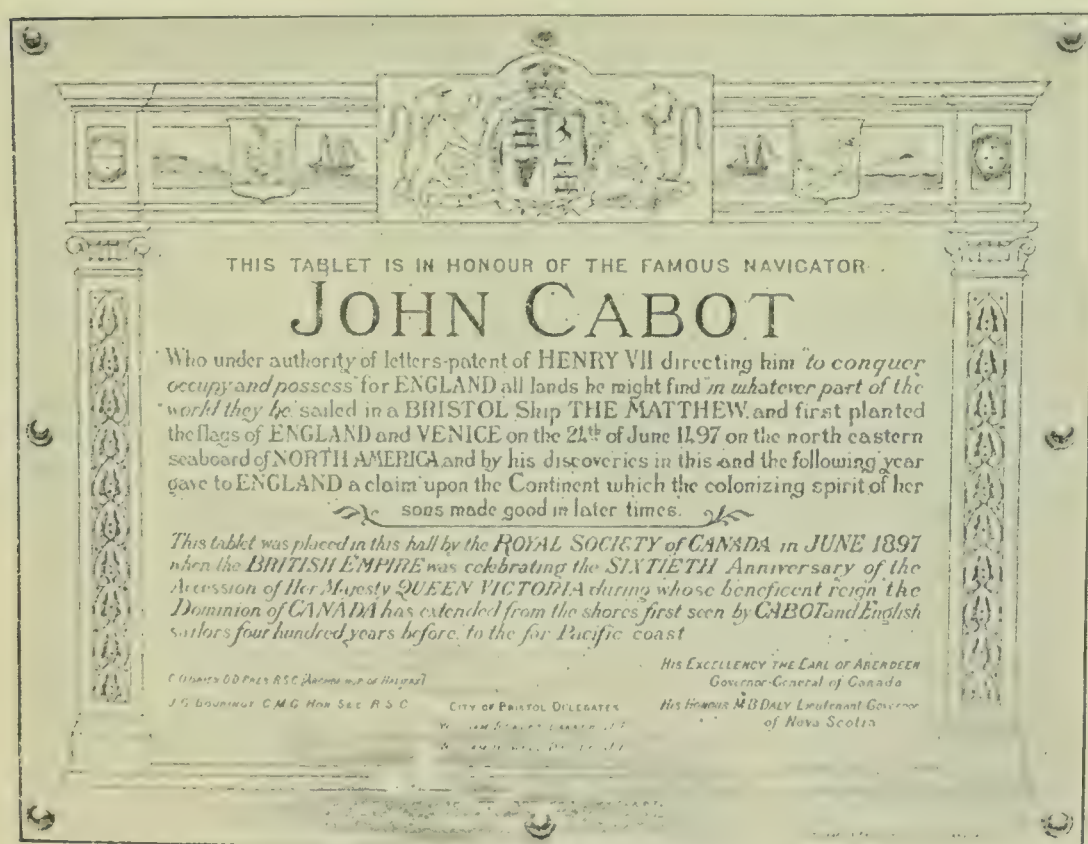 THIS TABLET IS IN HONOUR OF THE FAMOUS NAVIGATOR
JOHN CABOT
Who under authority of letters-patent of HENRY VII directing him "to conquer
occupy and possess" for ENGLAND all lands he might find "in whatever part of the
world they be" sailed in a BRISTOL Ship THE MATTHEW and first planted
the flags of ENGLAND and VENICE on the 24th of June 1497 on the north eastern
seaboard of NORTH AMERICA and by his discoveries in this and the following year
gave to ENGLAND a claim upon the Continent which the colonizing spirit of her
sons made good in later times.
This tablet was placed in this hall by the ROYAL SOCIETY of CANADA in JUNE 1897
when the BRITISH EMPIRE was celebrating the SIXTIETH Anniversary of the
Accession of Her Majesty QUEEN VICTORIA during whose beneficent reign the
Dominion of CANADA has extended from the shores first seen by CABOT and English
sailors four hundred years before, to the far Pacific coast
HIS EXCELLENCY THE EARL OF ABERDEEN
Governor-General of Canada
HIS HONOUR M B DALY Lieutenant Governor
of Nova Scotia
D D PRES R S C
J G BOURINOT C M G HON SEC R S C
CITY OF BRISTOL DELEGATES